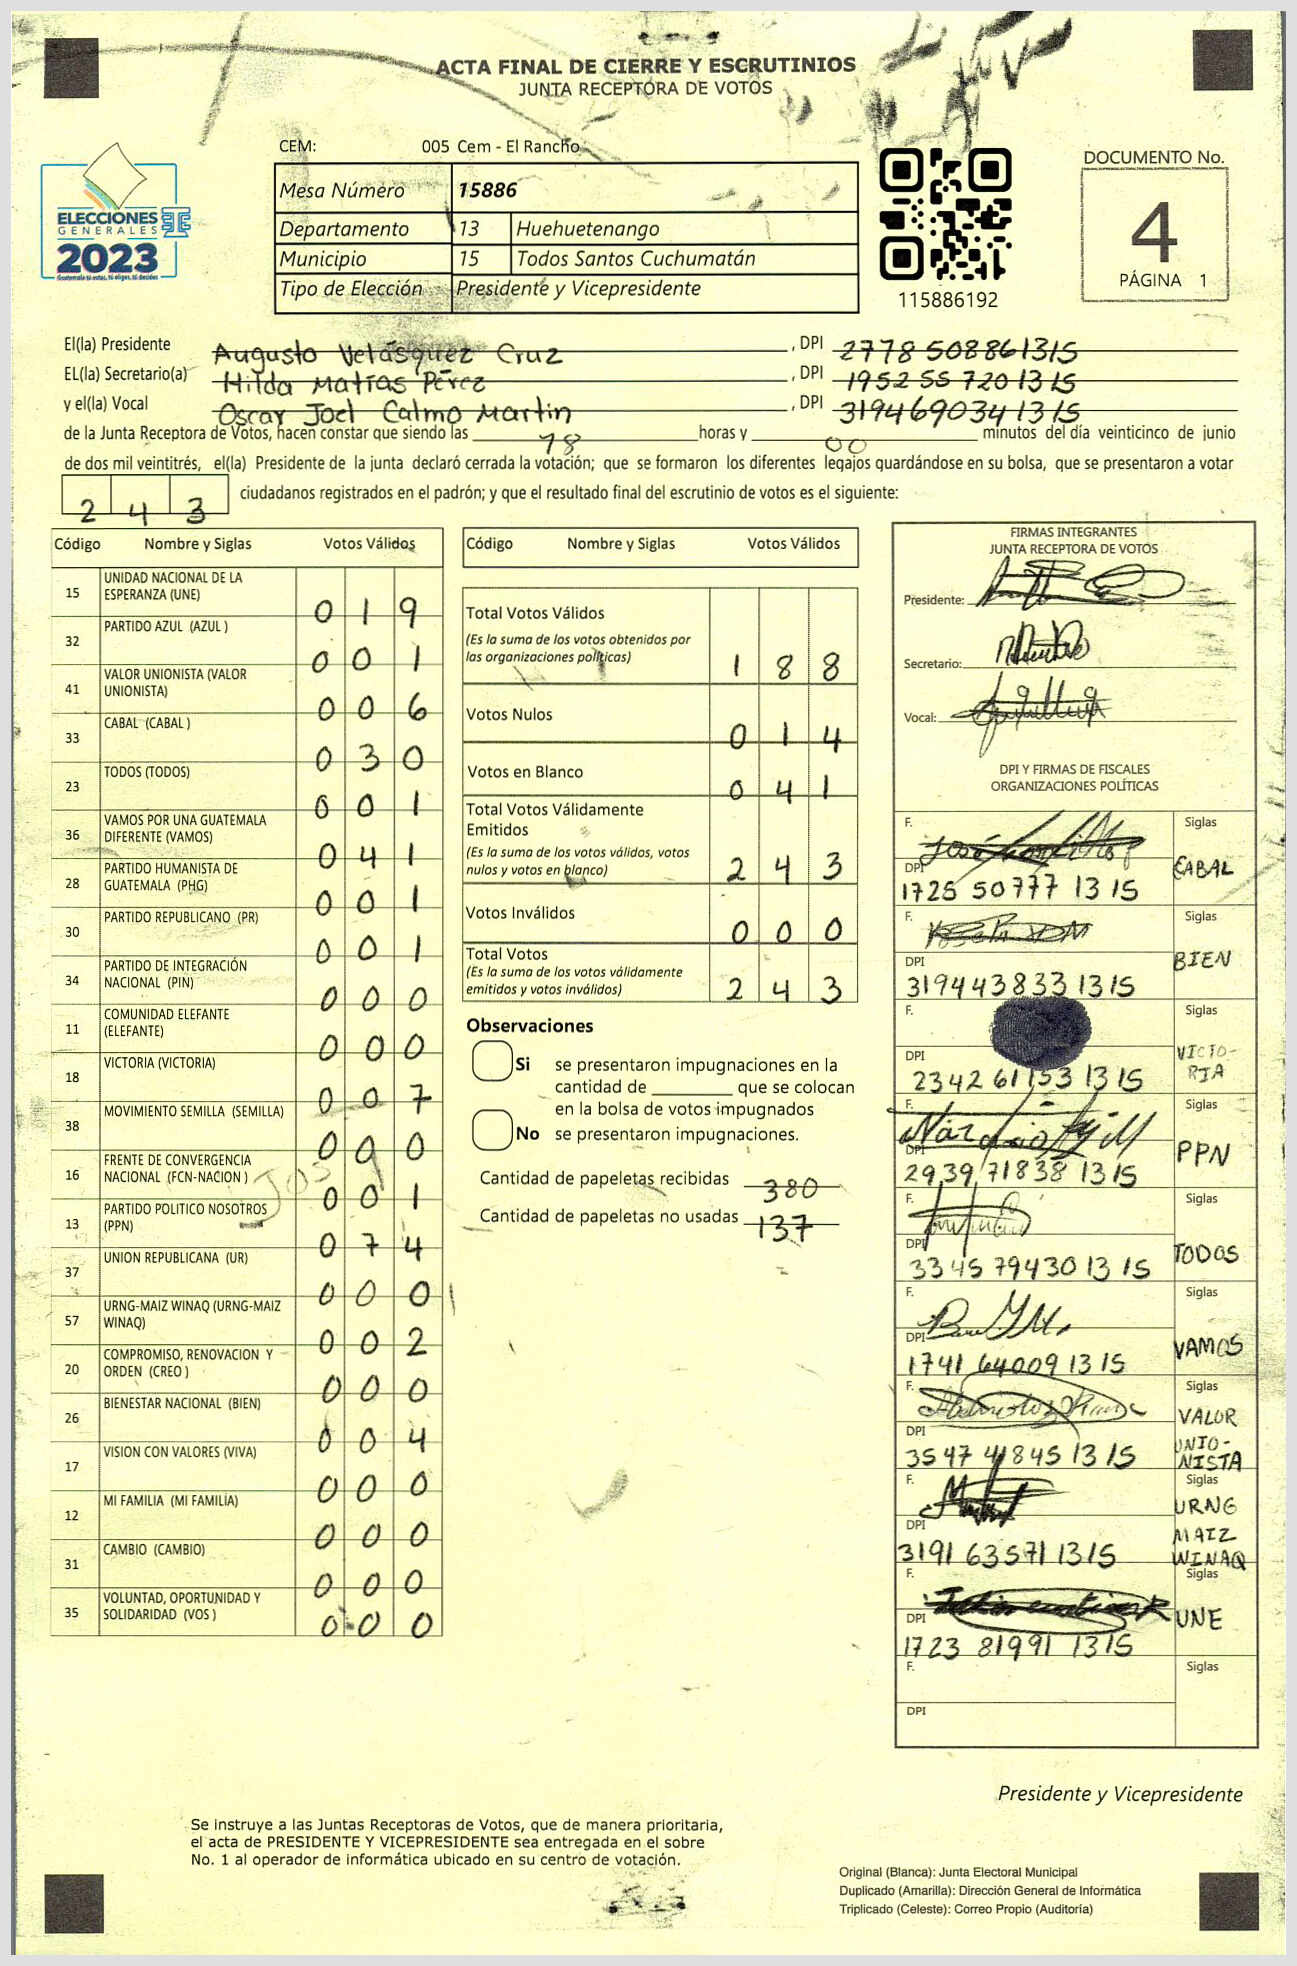 ACTA FINAL DE CIERRE Y ESCRUTINIOS
JUNTA RECEPTORA DE VOTOS
CEM: 005 Cem - El Rancho
Mesa Número 15886
Departamento 13 Huehuetenango
Municipio 15 Todos Santos Cuchumatán
Tipo de Elección Presidente y Vicepresidente
ELECCIONES
GENERALES
2023
Guatemala tú votas, tú eliges, tú decides
115886192
DOCUMENTO No.
4
PÁGINA 1
El(la) Presidente Augusto Velásquez Cruz , DPI 2778 50886 1315
EL(la) Secretario(a) Hilda Matías Pérez , DPI 1952 55 720 1315
y el(la) Vocal Oscar Joel Calmo Martin , DPI 3194 69034 1315
de la Junta Receptora de Votos, hacen constar que siendo las 18 horas y 00 minutos del día veinticinco de junio
de dos mil veintitrés, el(la) Presidente de la junta declaró cerrada la votación; que se formaron los diferentes legajos guardándose en su bolsa, que se presentaron a votar
2 4 3 ciudadanos registrados en el padrón; y que el resultado final del escrutinio de votos es el siguiente:
Código Nombre y Siglas Votos Válidos
15 UNIDAD NACIONAL DE LA ESPERANZA (UNE) 0 1 9
32 PARTIDO AZUL (AZUL ) 0 0 1
41 VALOR UNIONISTA (VALOR UNIONISTA) 0 0 6
33 CABAL (CABAL ) 0 3 0
23 TODOS (TODOS) 0 0 1
36 VAMOS POR UNA GUATEMALA DIFERENTE (VAMOS) 0 4 1
28 PARTIDO HUMANISTA DE GUATEMALA (PHG) 0 0 1
30 PARTIDO REPUBLICANO (PR) 0 0 1
34 PARTIDO DE INTEGRACIÓN NACIONAL (PIN) 0 0 0
11 COMUNIDAD ELEFANTE (ELEFANTE) 0 0 0
18 VICTORIA (VICTORIA) 0 0 7
38 MOVIMIENTO SEMILLA (SEMILLA) 0 0 0
16 FRENTE DE CONVERGENCIA NACIONAL (FCN-NACION ) 0 0 1
13 PARTIDO POLITICO NOSOTROS (PPN) 0 7 4
37 UNION REPUBLICANA (UR) 0 0 0
57 URNG-MAIZ WINAQ (URNG-MAIZ WINAQ) 0 0 2
20 COMPROMISO, RENOVACION Y ORDEN (CREO ) 0 0 0
26 BIENESTAR NACIONAL (BIEN) 0 0 4
17 VISION CON VALORES (VIVA) 0 0 0
12 MI FAMILIA (MI FAMILIA) 0 0 0
31 CAMBIO (CAMBIO) 0 0 0
35 VOLUNTAD, OPORTUNIDAD Y SOLIDARIDAD (VOS ) 0 0 0
Código Nombre y Siglas Votos Válidos
Total Votos Válidos
(Es la suma de los votos obtenidos por
las organizaciones políticas) 1 8 8
Votos Nulos 0 1 4
Votos en Blanco 0 4 1
Total Votos Válidamente
Emitidos
(Es la suma de los votos válidos, votos
nulos y votos en blanco) 2 4 3
Votos Inválidos 0 0 0
Total Votos
(Es la suma de los votos válidamente
emitidos y votos inválidos) 2 4 3
Observaciones
Si se presentaron impugnaciones en la
cantidad de ________ que se colocan
en la bolsa de votos impugnados
No se presentaron impugnaciones.
Cantidad de papeletas recibidas 380
Cantidad de papeletas no usadas 137
FIRMAS INTEGRANTES
JUNTA RECEPTORA DE VOTOS
Presidente:
Secretario:
Vocal:
DPI Y FIRMAS DE FISCALES
ORGANIZACIONES POLÍTICAS
F. Siglas
DPI 1725 50777 1315 CABAL
F. Siglas
DPI 3194 43833 1315 BIEN
F. Siglas
DPI 2342 61153 1315 VICTO-
RIA
F. Siglas
DPI 2939 71838 1315 PPN
F. Siglas
DPI 3345 79430 1315 TODOS
F. Siglas
DPI 1741 64009 1315 VAMOS
F. Siglas
DPI 3547 41845 1315 VALOR
UNIO-
NISTA
F. Siglas
DPI 3191 63571 1315 URNG
MAIZ
WINAQ
F. Siglas
DPI 1723 81991 1315 UNE
F. Siglas
DPI
Presidente y Vicepresidente
Se instruye a las Juntas Receptoras de Votos, que de manera prioritaria,
el acta de PRESIDENTE Y VICEPRESIDENTE sea entregada en el sobre
No. 1 al operador de informática ubicado en su centro de votación.
Original (Blanca): Junta Electoral Municipal
Duplicado (Amarilla): Dirección General de Informática
Triplicado (Celeste): Correo Propio (Auditoría)